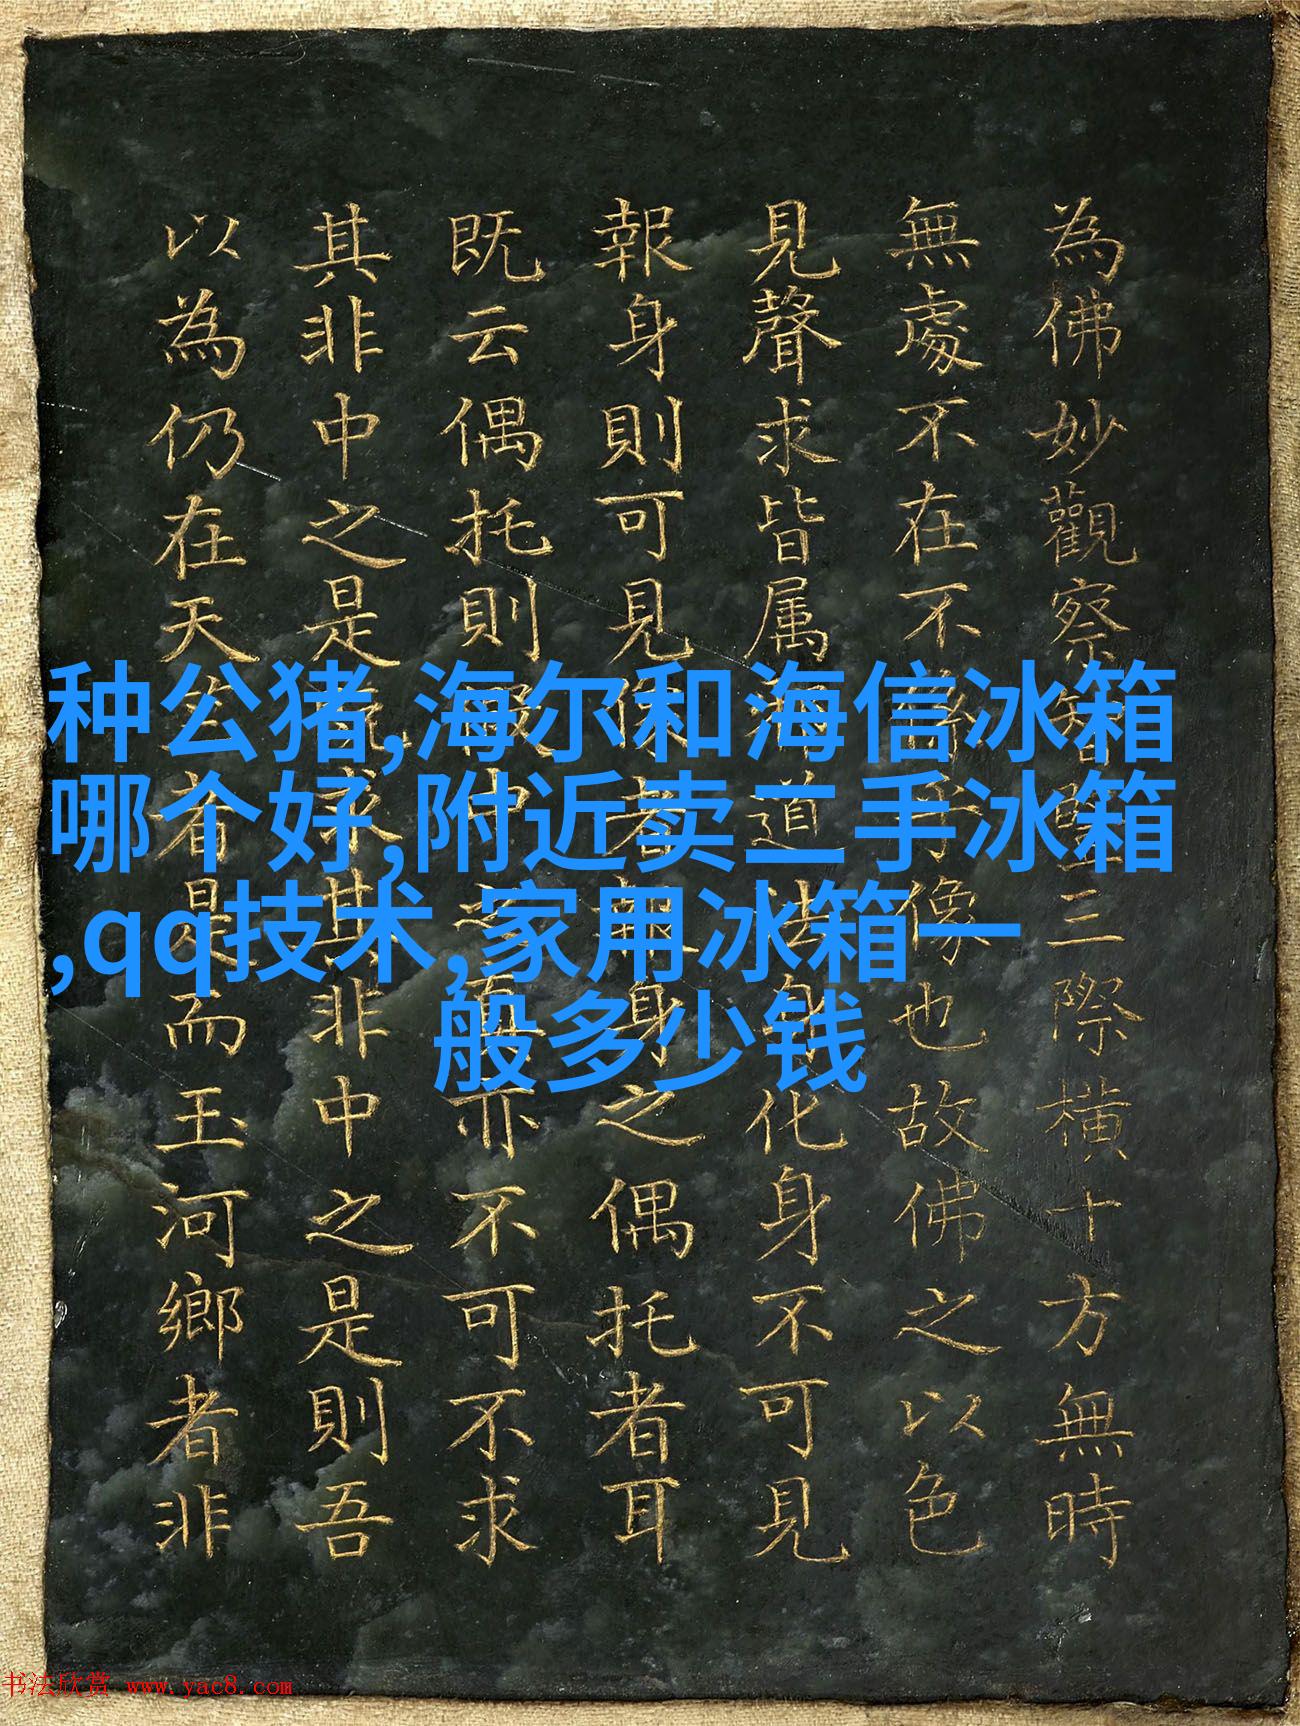 為佛妙觀察智三際橫十方無時
無處不在不像也故佛之以色
見聲求皆属道法身化身不可見
報身則可見者報身之偶托者耳
既云偶托則中之真亦不可不求
其非中之是求其非中之是則吾
以為仍在天竺者是而玉河鄉者非
种公猪,海尔和海信冰箱
哪个好,附近卖二手冰箱
,qq技术,家用冰箱一
般多少钱
书法欣赏 www.yac8.com